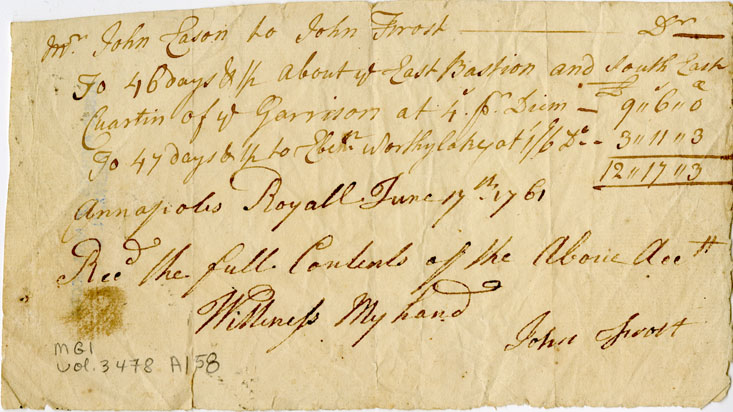 Mr John Eason to John Frost Dr
To 46 days & ½ About ye East Bastion and South East
Quartin of ye Garrison at 4s pr Diem – £ 9"6"0
To 47 days & ½ to Ebenr Worthylake at 1/6 Do - 3"11"3
12"17"3
Annapolis Royall June 17th 1761
Recd the full Contents of the Above Acctt
Wittness My hand
John Frost
MG1
Vol. 3478 A158